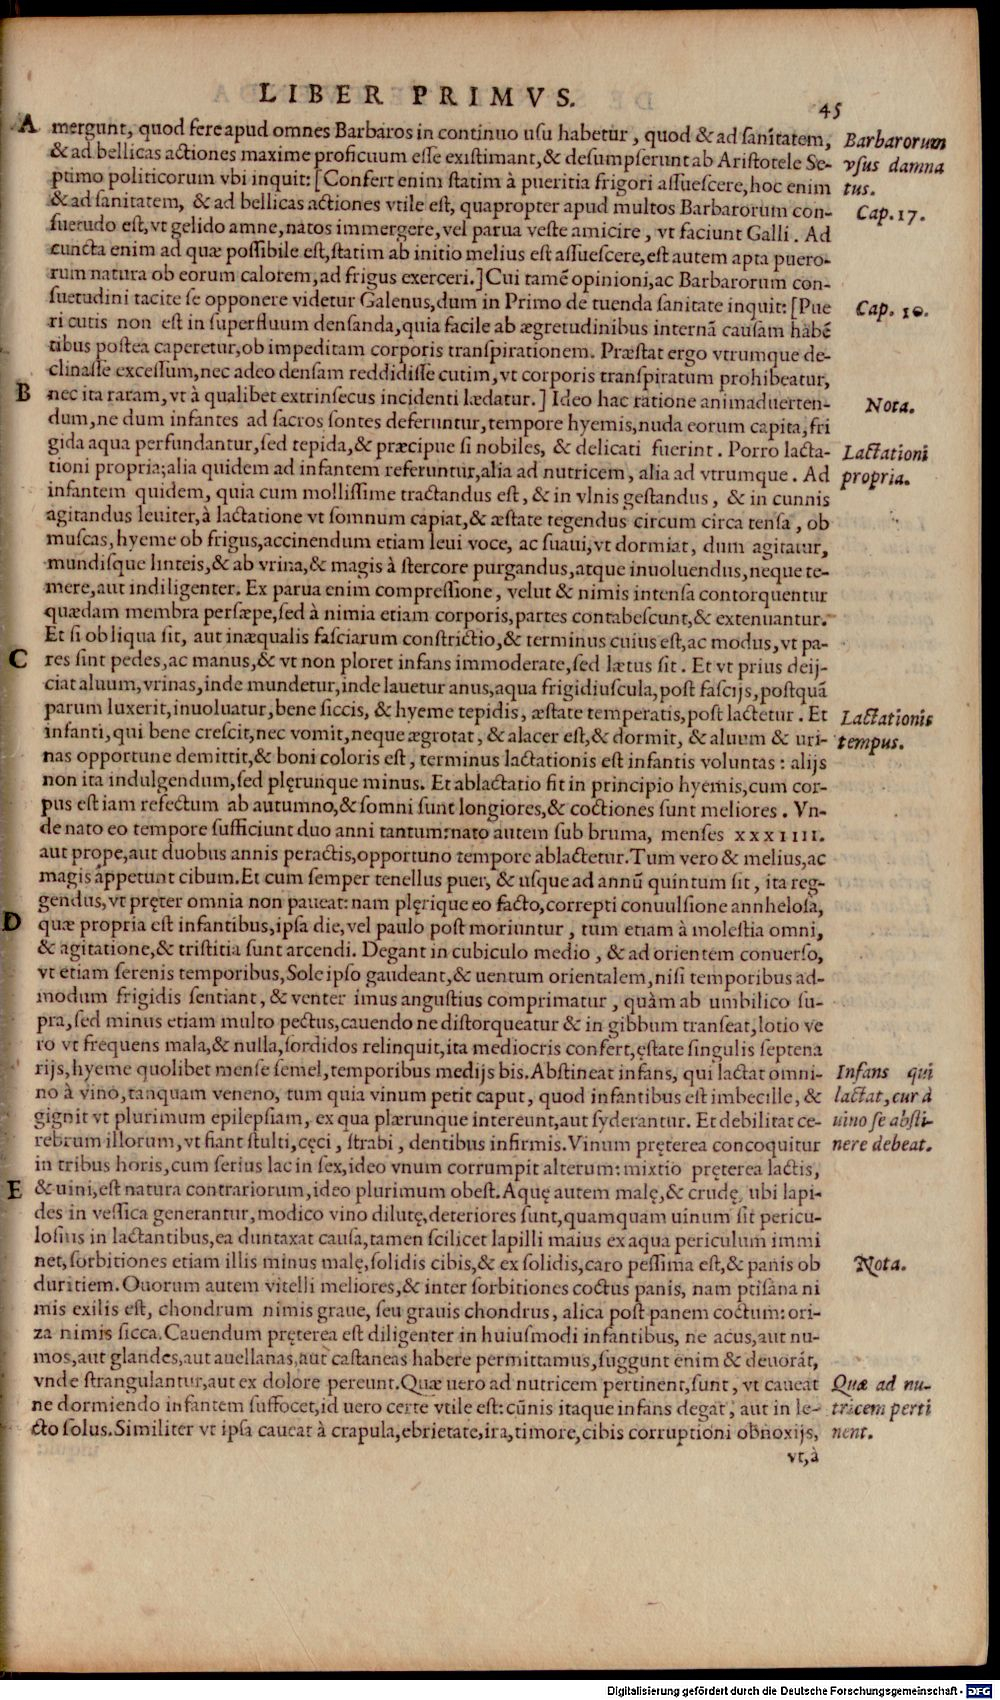 LIBER PRIMVS. 45
A mergunt, quod fere apud omnes Barbaros in continuo usu habetur, quod & ad sanitatem,
& ad bellicas actiones maxime proficuum esse existimant, & desumpserunt ab Aristotele Se-
ptimo politicorum vbi inquit: [Confert enim statim à pueritia frigori assuescere, hoc enim
& ad sanitatem, & ad bellicas actiones vtile est, quapropter apud multos Barbarorum con-
suetudo est, vt gelido amne, natos immergere, vel parua veste amicire, vt faciunt Galli. Ad
cuncta enim ad quæ possibile est, statim ab initio melius est assuescere, est autem apta puero-
rum natura ob eorum calorem, ad frigus exerceri.] Cui tamē opinioni, ac Barbarorum con-
suetudini tacite se opponere videtur Galenus, dum in Primo de tuenda sanitate inquit: [Pue
ri cutis non est in superfluum densanda, quia facile ab ægretudinibus internā causam habē
tibus postea caperetur, ob impeditam corporis transpirationem. Præstat ergo vtrumque de-
clinasse excessum, nec adeo densam reddidisse cutim, vt corporis transpiratum prohibeatur,
B nec ita raram, vt à qualibet extrinsecus incidenti lædatur.] Ideo hac ratione animaduerten-
dum, ne dum infantes ad sacros fontes deferuntur, tempore hyemis, nuda eorum capita, fri
gida aqua perfundantur, sed tepida, & præcipue si nobiles, & delicati fuerint. Porro lacta-
tioni propria; alia quidem ad infantem referuntur, alia ad nutricem, alia ad vtrumque. Ad
infantem quidem, quia cum mollissime tractandus est, & in vlnis gestandus, & in cunnis
agitandus leuiter, à lactatione vt somnum capiat, & æstate tegendus circum circa tensa, ob
muscas, hyeme ob frigus, accinendum etiam leui voce, ac suaui, vt dormiat, dum agitatur,
mundisque linteis, & ab vrina, & magis à stercore purgandus, atque inuoluendus, neque te-
mere, aut indiligenter. Ex parua enim compressione, velut & nimis intensa contorquentur
quædam membra persæpe, sed à nimia etiam corporis, partes contabescunt, & extenuantur.
Et si obliqua sit, aut inæqualis fasciarum constrictio, & terminus cuius est, ac modus, vt pa-
C res sint pedes, ac manus, & vt non ploret infans immoderate, sed lætus sit. Et vt prius deij-
ciat aluum, vrinas, inde mundetur, inde lauetur anus, aqua frigidiuscula, post fascijs, postquā
parum luxerit, inuoluatur, bene siccis, & hyeme tepidis, æstate temperatis, post lactetur. Et
infanti, qui bene crescit, nec vomit, neque ægrotat, & alacer est, & dormit, & aluum & uri-
nas opportune demittit, & boni coloris est, terminus lactationis est infantis voluntas: alijs
non ita indulgendum, sed plęrunque minus. Et ablactatio fit in principio hyemis, cum cor-
pus est iam refectum ab autumno, & somni sunt longiores, & coctiones sunt meliores. Vn-
de nato eo tempore sufficiunt duo anni tantum: nato autem sub bruma, menses xxxIIII.
aut prope, aut duobus annis peractis, opportuno tempore ablactetur. Tum vero & melius, ac
magis appetunt cibum. Et cum semper tenellus puer, & usque ad annū quintum sit, ita reg-
gendus, vt pręter omnia non paueat: nam plęrique eo facto, correpti conuulsione annhelosa,
D quæ propria est infantibus, ipsa die, vel paulo post moriuntur, tum etiam à molestia omni,
& agitatione, & tristitia sunt arcendi. Degant in cubiculo medio, & ad orientem conuerso,
vt etiam serenis temporibus, Sole ipso gaudeant, & uentum orientalem, nisi temporibus ad-
modum frigidis sentiant, & venter imus angustius comprimatur, quàm ab umbilico su-
pra, sed minus etiam multo pectus, cauendo ne distorqueatur & in gibbum transeat, lotio ve
ro vt frequens mala, & nulla, sordidos relinquit, ita mediocris confert, ęstate singulis septena
rijs, hyeme quolibet mense semel, temporibus medijs bis. Abstineat infans, qui lactat omni-
no à vino, tanquam veneno, tum quia vinum petit caput, quod infantibus est imbecille, &
gignit vt plurimum epilepsiam, ex qua plærunque intereunt, aut syderantur. Et debilitat ce-
rebrum illorum, vt fiant stulti, cęci, strabi, dentibus infirmis. Vinum pręterea concoquitur
in tribus horis, cum serius lac in sex, ideo vnum corrumpit alterum: mixtio pręterea lactis,
E & uini, est natura contrariorum, ideo plurimum obest. Aquę autem malę, & crudę, ubi lapi-
des in vessica generantur, modico vino dilutę, deteriores sunt, quamquam uinum sit pericu-
losius in lactantibus, ea duntaxat causa, tamen scilicet lapilli maius ex aqua periculum immi
net, sorbitiones etiam illis minus malę, solidis cibis, & ex solidis, caro pessima est, & panis ob
duritiem. Ouorum autem vitelli meliores, & inter sorbitiones coctus panis, nam ptisana ni
mis exilis est, chondrum nimis graue, seu grauis chondrus, alica post panem coctum: ori-
za nimis sicca. Cauendum pręterea est diligenter in huiusmodi infantibus, ne acus, aut nu-
mos, aut glandes, aut auellanas, aut castaneas habere permittamus, suggunt enim & deuorāt,
vnde strangulantur, aut ex dolore pereunt. Quæ uero ad nutricem pertinent, sunt, vt caueat
ne dormiendo infantem suffocet, id uero certe vtile est: cūnis itaque infans degat, aut in le-
cto solus. Similiter vt ipsa caueat à crapula, ebrietate, ira, timore, cibis corruptioni obnoxijs,
vt, à
Barbarorum
vsus damna
tus.
Cap. 17.
Cap. 10.
Nota.
Lactationi
propria.
Lactationis
tempus.
Infans qui
lactat, cur à
uino se absti-
nere debeat.
Nota.
Quæ ad nu-
tricem perti
nent.
Digitalisierung gefördert durch die Deutsche Forschungsgemeinschaft - DFG